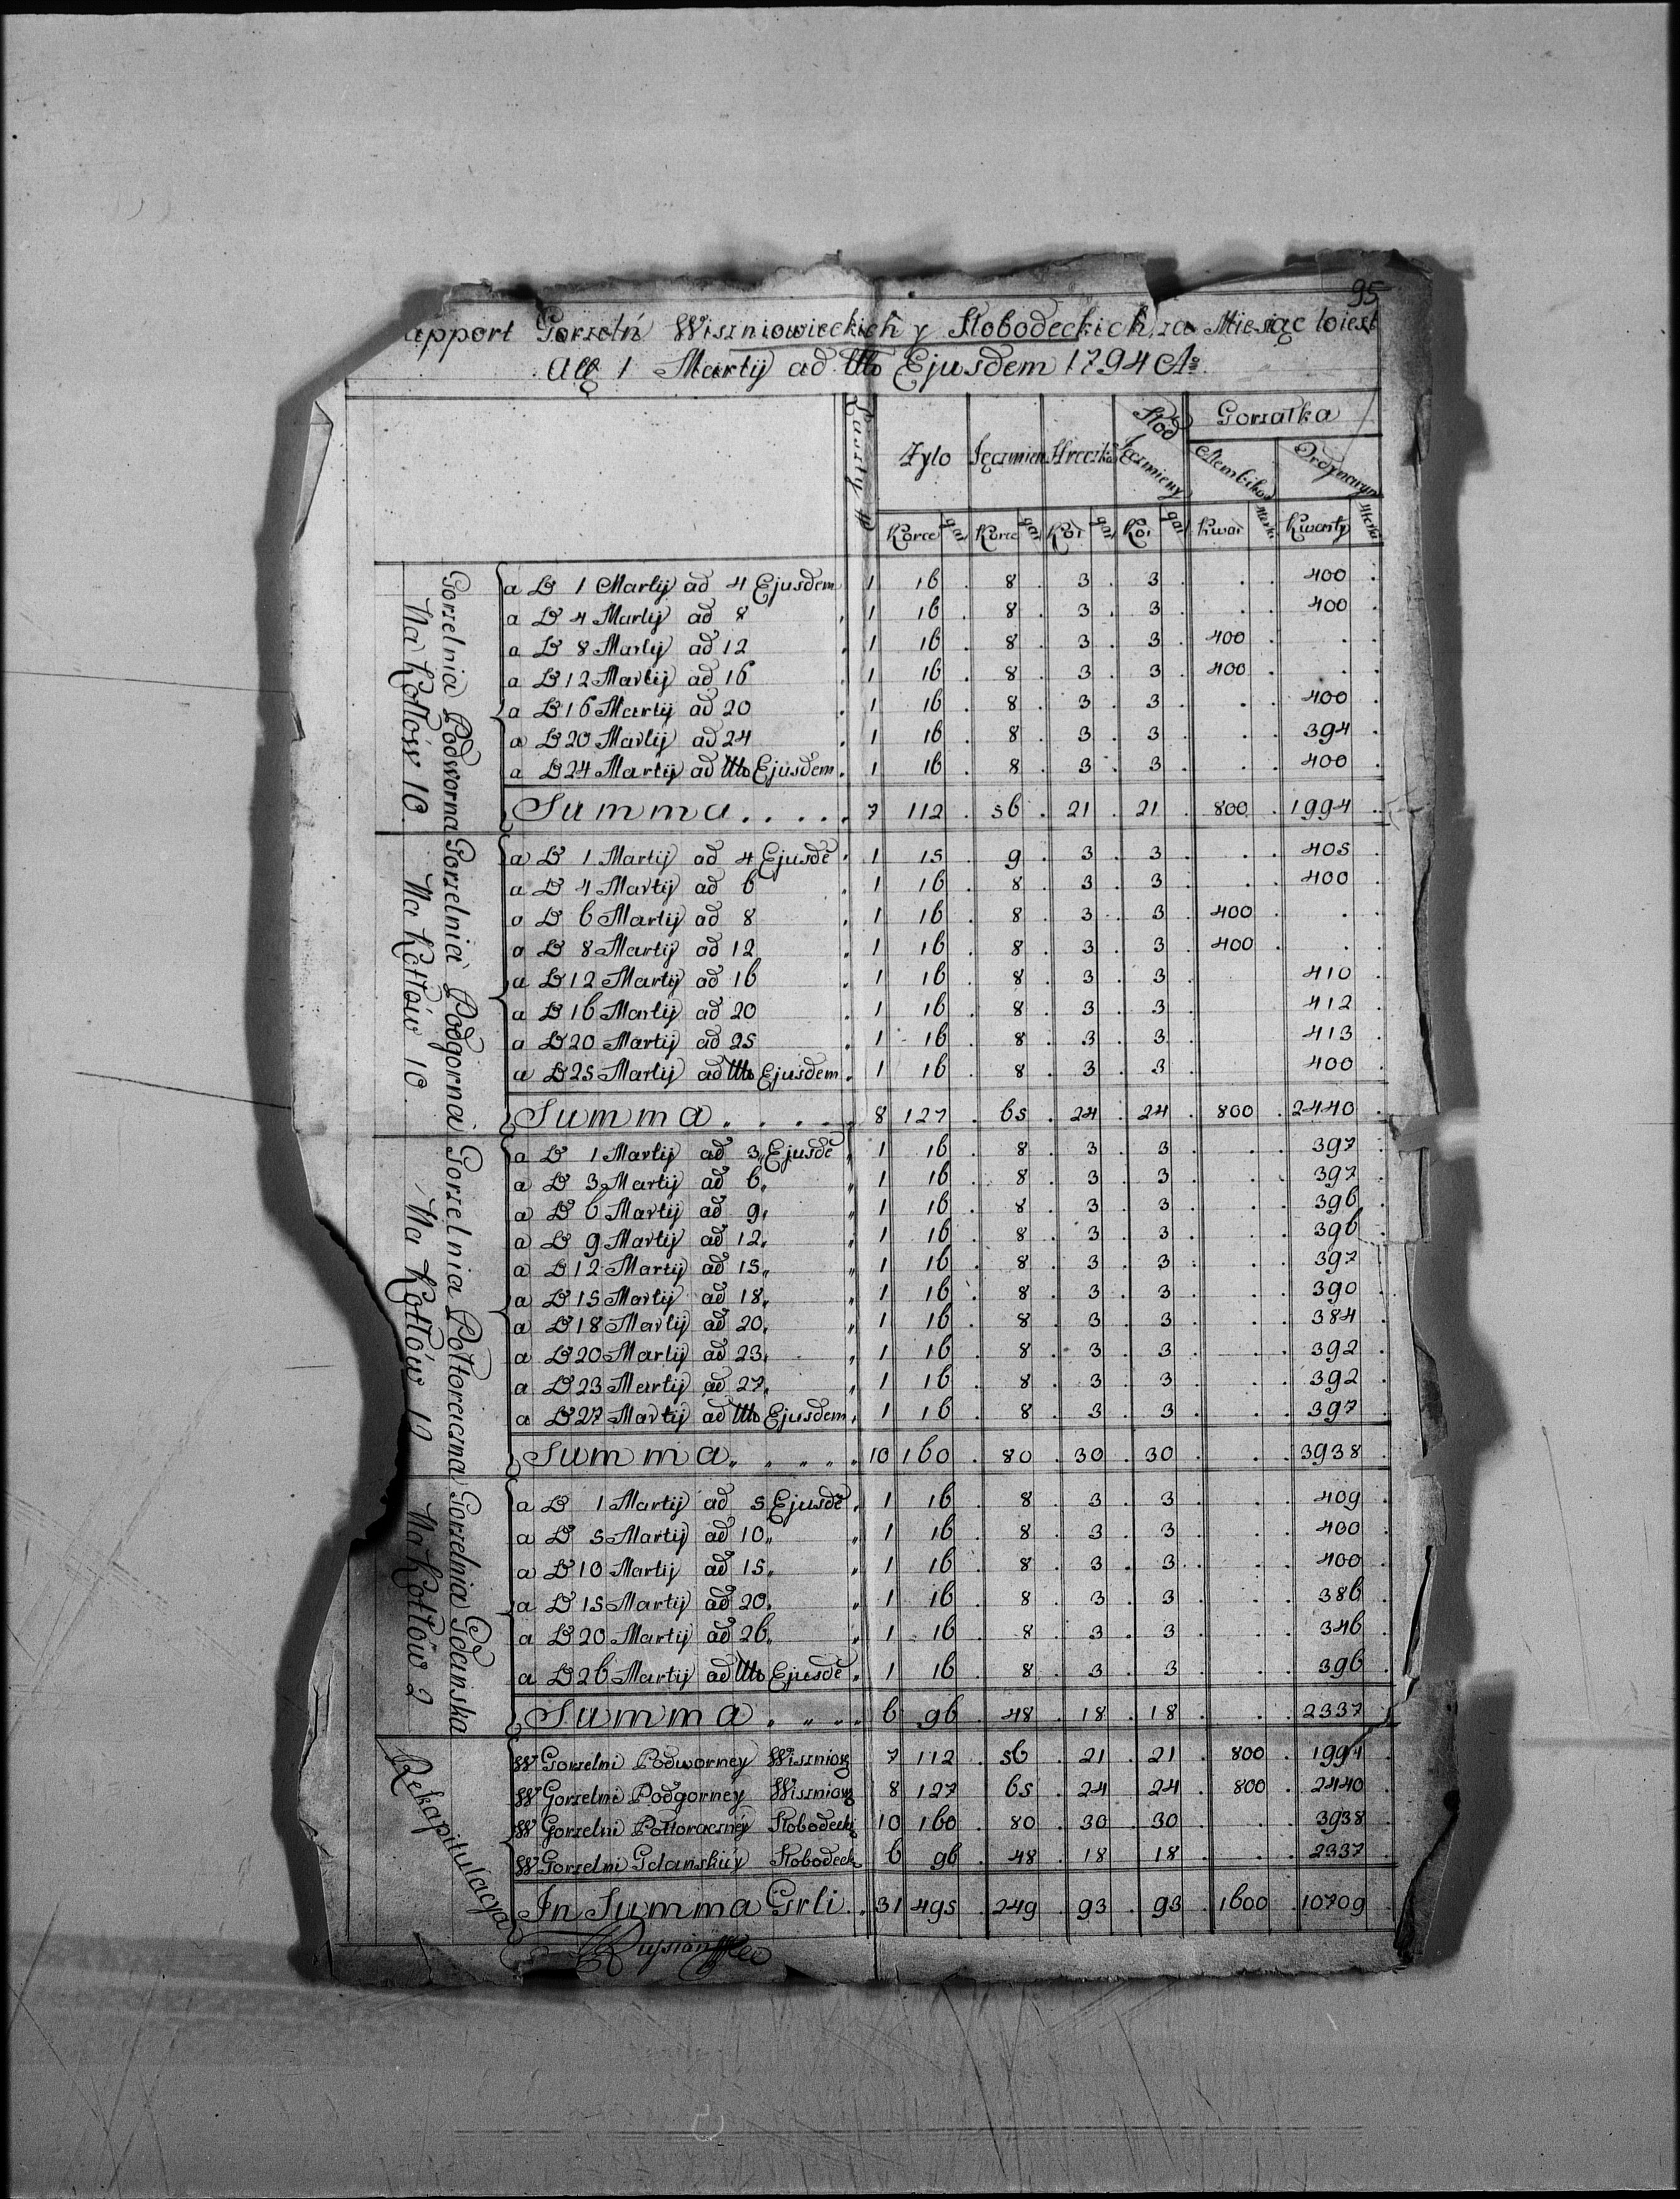 95
apport Gorzelń Wiszniowieckich y Słobodeckich, za Miesiąc to iest
1 Martij ad Ult° Ejusdem 1794 A°
Żyto Jęczmień Hreczka Słod Jęczmieny Gorzałka
Alembikow Ordynaryi
Korce gar Korce gar Kor gar Kor gar kwar kwarty
Gorzelnia Podworna
Na Kotłów 10
a D 1 Martij ad 4 Ejusdem 1 16 . 8 . 3 . 3 . . . 400 .
a D 4 Martij ad 8 . 1 16 . 8 . 3 . 3 . . . 400 .
a D 8 Martij ad 12 . 1 16 . 8 . 3 . 3 . 400 . . .
a D 12 Martij ad 16 . 1 16 . 8 . 3 . 3 . 400 . . .
a D 16 Martij ad 20 . 1 16 . 8 . 3 . 3 . . . 400 .
a D 20 Martij ad 24 . 1 16 . 8 . 3 . 3 . . . 394 .
a D 24 Martij ad Ult° Ejusdem . 1 16 . 8 . 3 . 3 . . . 400 .
Summa . . . . . 7 112 . 56 . 21 . 21 . 800 . 1994 .
Gorzelnia Podgorna
Na Kotłów 10
a D 1 Martij ad 4 Ejusdē . 1 15 . 9 . 3 . 3 . . . 405 .
a D 4 Martij ad 6 . 1 16 . 8 . 3 . 3 . . . 400 .
a D 6 Martij ad 8 . 1 16 . 8 . 3 . 3 . 400 . . .
a D 8 Martij ad 12 . 1 16 . 8 . 3 . 3 . 400 . . .
a D 12 Martij ad 16 . 1 16 . 8 . 3 . 3 . 410 .
a D 16 Martij ad 20 . 1 16 . 8 . 3 . 3 . 412 .
a D 20 Martij ad 25 . 1 16 . 8 . 3 . 3 . 413 .
a D 25 Martij ad Ult° Ejusdem . 1 16 . 8 . 3 . 3 . 400 .
Summa . . . . . 8 127 . 65 . 24 . 24 . 800 . 2440 .
Gorzelnia Połtoraczna
Na Kotłów 10
a D 1 Martij ad 3 „ Ejusdē „ 1 16 . 8 . 3 . 3 . . . 397 .
a D 3 Martij ad 6 „ „ 1 16 . 8 . 3 . 3 . . . 397 .
a D 6 Martij ad 9 „ „ 1 16 . 8 . 3 . 3 . . . 396 .
a D 9 Martij ad 12 „ „ 1 16 . 8 . 3 . 3 . . . 396 .
a D 12 Martij ad 15 „ „ 1 16 . 8 . 3 . 3 . . . 397 .
a D 15 Martij ad 18 „ „ 1 16 . 8 . 3 . 3 . . . 390 .
a D 18 Martij ad 20 „ „ 1 16 . 8 . 3 . 3 . . . 384 .
a D 20 Martij ad 23 „ „ 1 16 . 8 . 3 . 3 . . . 392 .
a D 23 Martij ad 27 „ „ 1 16 . 8 . 3 . 3 . . . 392 .
a D 27 Martij ad Ult° Ejusdem „ 1 16 . 8 . 3 . 3 . . . 397 .
Summa „ „ „ „ „ 10 160 . 80 . 30 . 30 . . . 3938 .
Gorzelnia Gdańska
Na Kotłów 2
a D 1 Martij ad 5 Ejusdē „ 1 16 . 8 . 3 . 3 . . . 409 .
a D 5 Martij ad 10 „ „ 1 16 . 8 . 3 . 3 . . . 400 .
a D 10 Martij ad 15 „ „ 1 16 . 8 . 3 . 3 . . . 400 .
a D 15 Martij ad 20 „ „ 1 16 . 8 . 3 . 3 . . . 386 .
a D 20 Martij ad 26 „ „ 1 16 . 8 . 3 . 3 . . . 346 .
a D 26 Martij ad Ult° Ejusdē „ 1 16 . 8 . 3 . 3 . . . 396 .
Summa „ „ „ 6 96 . 48 . 18 . 18 . . . 2337 .
Rekapitulacya
W Gorzelni Podworney Wiszniow 7 112 . 56 . 21 . 21 . 800 . 1994 .
W Gorzelni Podgorney Wiszniow 8 127 . 65 . 24 . 24 . 800 . 2440 .
W Gorzelni Połtoraczney Słobodecki 10 160 . 80 . 30 . 30 . . . 3938 .
W Gorzelni Gdańskiey Słobodeck 6 96 . 48 . 18 . 18 . . . 2337 .
In Summa Grli . . 31 495 . 249 . 93 . 93 . 1600 . 10709 .